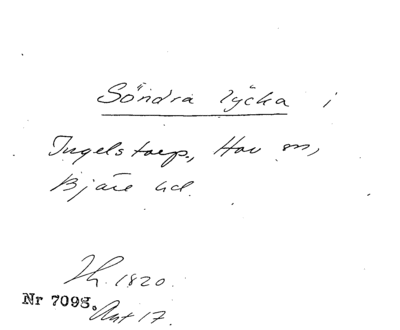 Söndra lycka i
Ingelstorp, Hov sn,
Bjäre hd.
Th. 1820.
Nr 7093.
Akt 17.